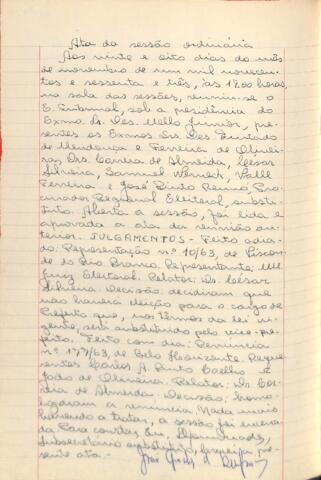 Ata da sessão ordinária
Aos vinte e oito dias do mês
de novembro de um mil novecen-
tos e sessenta e três, às 17,00 horas,
na sala das sessões, reuniu-se o
E. Tribunal, sob a presidência do
Exmo. Sr. Des. Mello Junior, pre-
sentes os Exmos. Srs. Des. Furtado
de Mendonça e Ferreira de Olivei-
ra, Drs. Correia de Almeida, Cesar
Silveira, Samuel Werneck, Valle
Ferreira e José Pinto Renó, Pro-
curador Regional Eleitoral, substi-
tuto. Aberta a sessão, foi lida e
aprovada a ata da reunião an-
terior. JULGAMENTOS - Feito adia-
do: Representação nº 10/63, de Viscon-
de do Rio Branco. Representante: MM
Juiz Eleitoral. Relator: Dr. César
Silveira. Decisão: decidiram que
não haverá eleição para o cargo de
Prefeito que, nos termos da lei vi-
gente, será substituído pelo vice-pre-
feito. Feito com dia: Renúncia
nº 177/63, de Belo Horizonte. Reque-
rentes: Carlos A. Pinto Coelho e
João de Oliveira. Relator: Dr. Cor-
reia de Almeida. Decisão: homo-
logaram a renúncia. Nada mais
havendo a tratar, a sessão foi encerra-
da. Para constar, Eu,
subsecretário substituto, lavrei a pre-
sente ata.